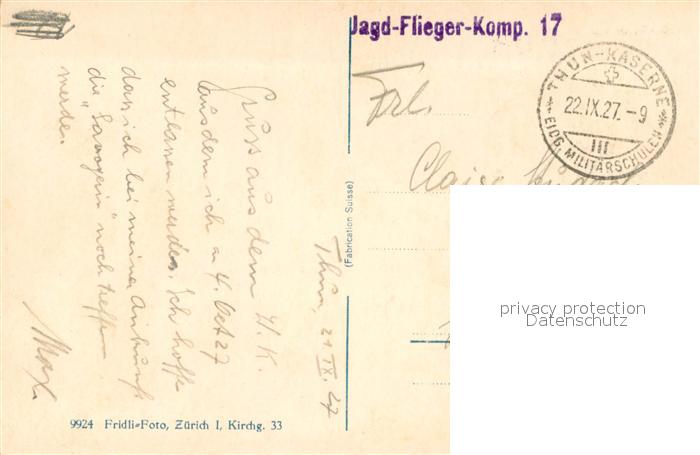 Jagd-Flieger-Komp. 17
THUN-KASERNE
22.IX.27.-9
EIDG. MILITÄRSCHULEN
III
Frl.
Claire
Thun, 21 IX. 27
Gruss aus dem W.K.
aus dem ich am 4. Oct 27
entlassen werde. Ich hoffe
dass ich bei meiner Ankunft
die "Savognin" noch treffen
werde.
Max.
(Fabrication Suisse)
9924 Fridli-Foto, Zürich I, Kirchg. 33
privacy protection
Datenschutz